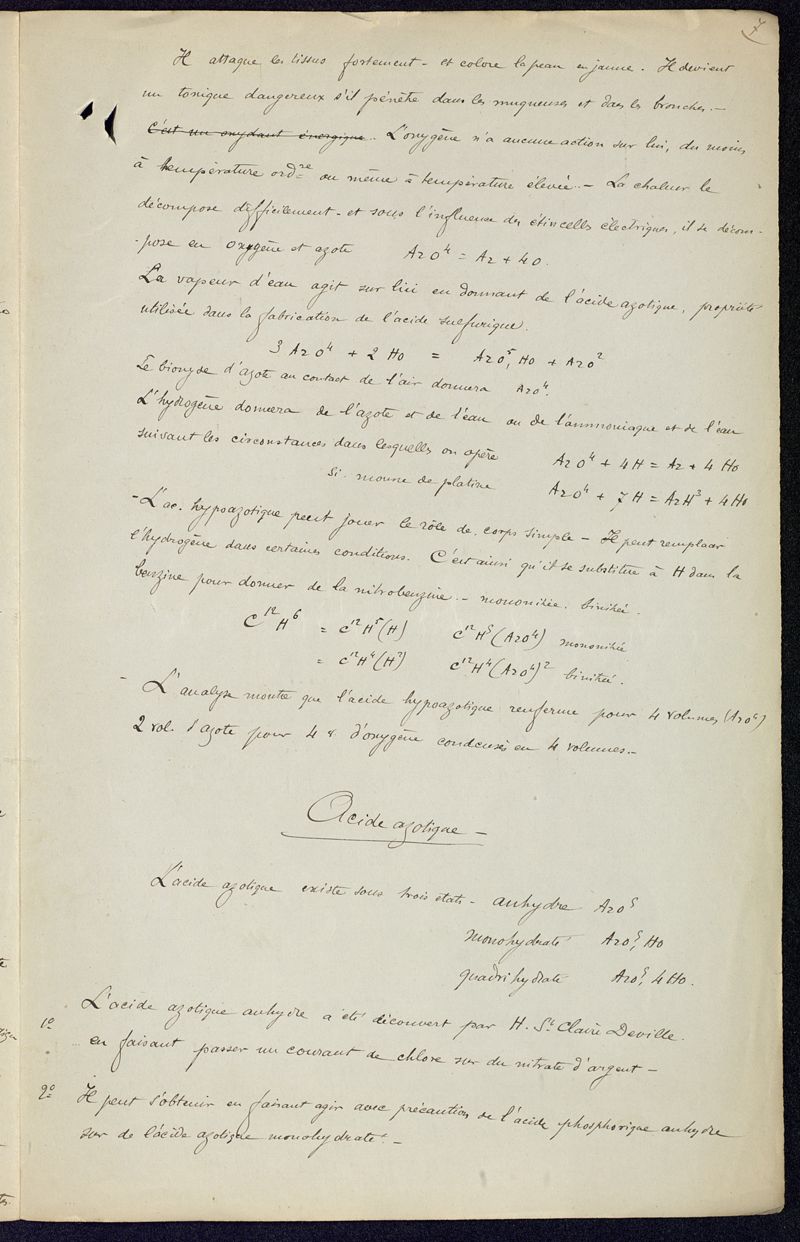 7
Il attaque les tissus fortement - et colore la peau en jaune. Il devient
un tonique dangereux s'il pénètre dans les muqueuses et dans les bronches. -
C'est un oxydant énergique. L'oxygène n'a aucune action sur lui, du moins
à température ord^re ou même à température élevée. - La chaleur le
décompose difficilement - et sous l'influence des étincelles électriques, il se décom-
-pose en oxygène et azote AzO^4 = Az + 4O.
La vapeur d'eau agit sur lui en donnant de l'acide azotique, propriété
utilisée dans la fabrication de l'acide sulfurique.
3 AzO^4 + 2 HO = AzO^5, HO + AzO^2
Le bioxyde d'azote au contact de l'air donnera AzO^4.
L'hydrogène donnera de l'azote et de l'eau ou de l'ammoniaque et de l'eau
suivant les circonstances dans lesquelles on opère AzO^4 + 4H = Az + 4 HO
Si mousse de platine AzO^4 + 7H = AzH^3 + 4HO
- L'ac. hypoazotique peut jouer le rôle de corps simple - Il peut remplacer
l'hydrogène dans certaines conditions. C'est ainsi qu'il se substitue à H dans la
benzine pour donner de la nitrobenzine. - mononitrée. binitrée.
C^12 H^6 = C^12 H^5 (H) C^12 H^5 (AzO^4) mononitrée
= C^12 H^4 (H^2) C^12 H^4 (AzO^4)^2 binitrée.
- L'analyse montre que l'acide hypoazotique renferme pour 4 volumes (AzO^4)
2 vol. d'azote pour 4 v d'oxygène condensés en 4 volumes. -
Acide azotique -
L'acide azotique existe sous trois états - anhydre AzO^5
monohydraté AzO^5, HO
quadrihydraté AzO^5, 4HO.
1° L'acide azotique anhydre a été découvert par H. S^t Claire Deville.
en faisant passer un courant de chlore sur du nitrate d'argent -
2° Il peut s'obtenir en faisant agir avec précaution de l'acide phosphorique anhydre
sur de l'acide azotique monohydraté. -